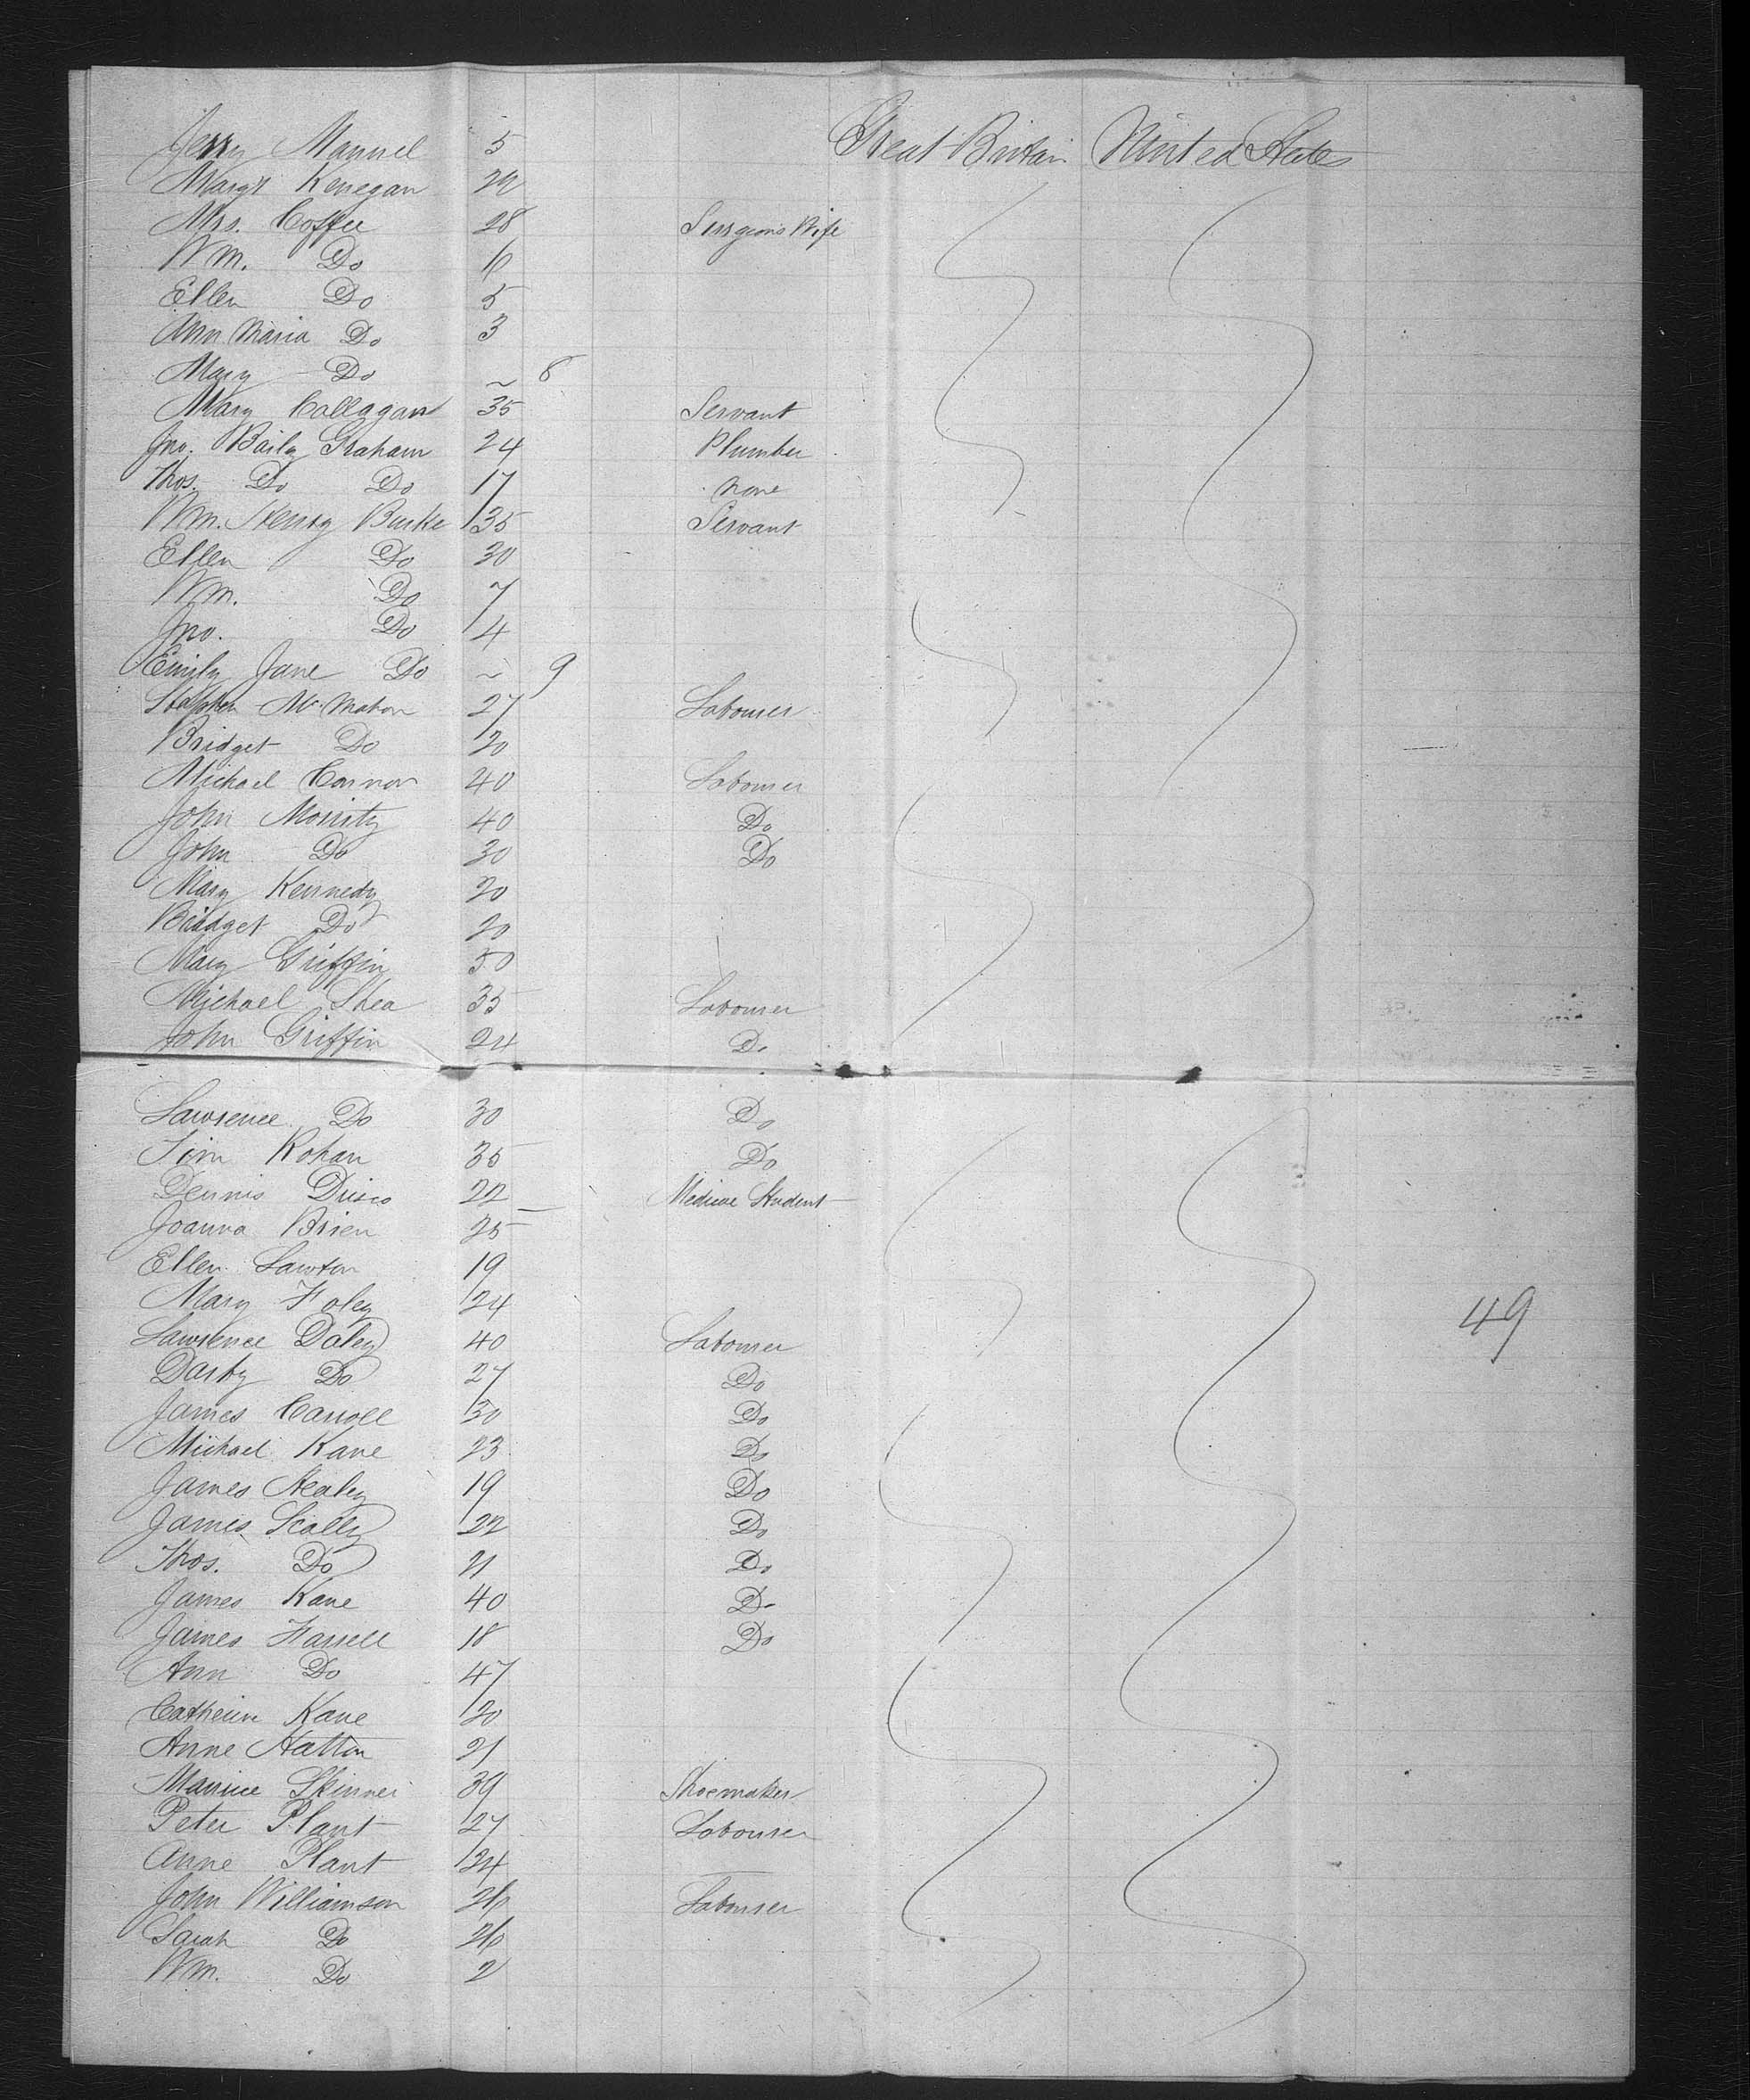 Jerry Manuel 5 Great Britain United States
Margt Kenegan 22
Mrs. Coffee 28 Surgeons Wife
Wm. Do 6
Ellen Do 5
Ann Maria Do 3
Mary Do ~ 8
Mary Callagan 35 Servant
Jno. Baily Graham 24 Plumber
Thos. Do Do 17 none
Wm. Henry Burke 35 Servant
Ellen Do 30
Wm. Do 7
Jno. Do 4
Emily Jane Do ~ 9
Stephen McMahon 27 Labourer
Bridget Do 20
Michael Connor 40 Labourer
John Morrity 40 Do
John Do 30 Do
Mary Kennedy 20
Bridget Do 20
Mary Griffin 50
Michael Shea 35 Labourer
John Griffin 24 Do
Lawrence Do 30 Do
Tim Rohan 35 Do
Dennis Drisco 22 Medical Student
Joanna Brien 25
Ellen Lawton 19
Mary Foley 24 49
Lawrence Daley 40 Labourer
Darby Do 27 Do
James Carroll 30 Do
Michael Kane 23 Do
James Healey 19 Do
James Scally 22 Do
Thos. Do 21 Do
James Kane 40 Do
James Farrell 18 Do
Ann Do 47
Catherine Kane 20
Anne Hatton 21
Maurice Skinner 39 Shoemaker
Peter Plant 27 Labourer
Anne Plant 24
John Williamson 26 Labourer
Sarah Do 26
Wm. Do 2